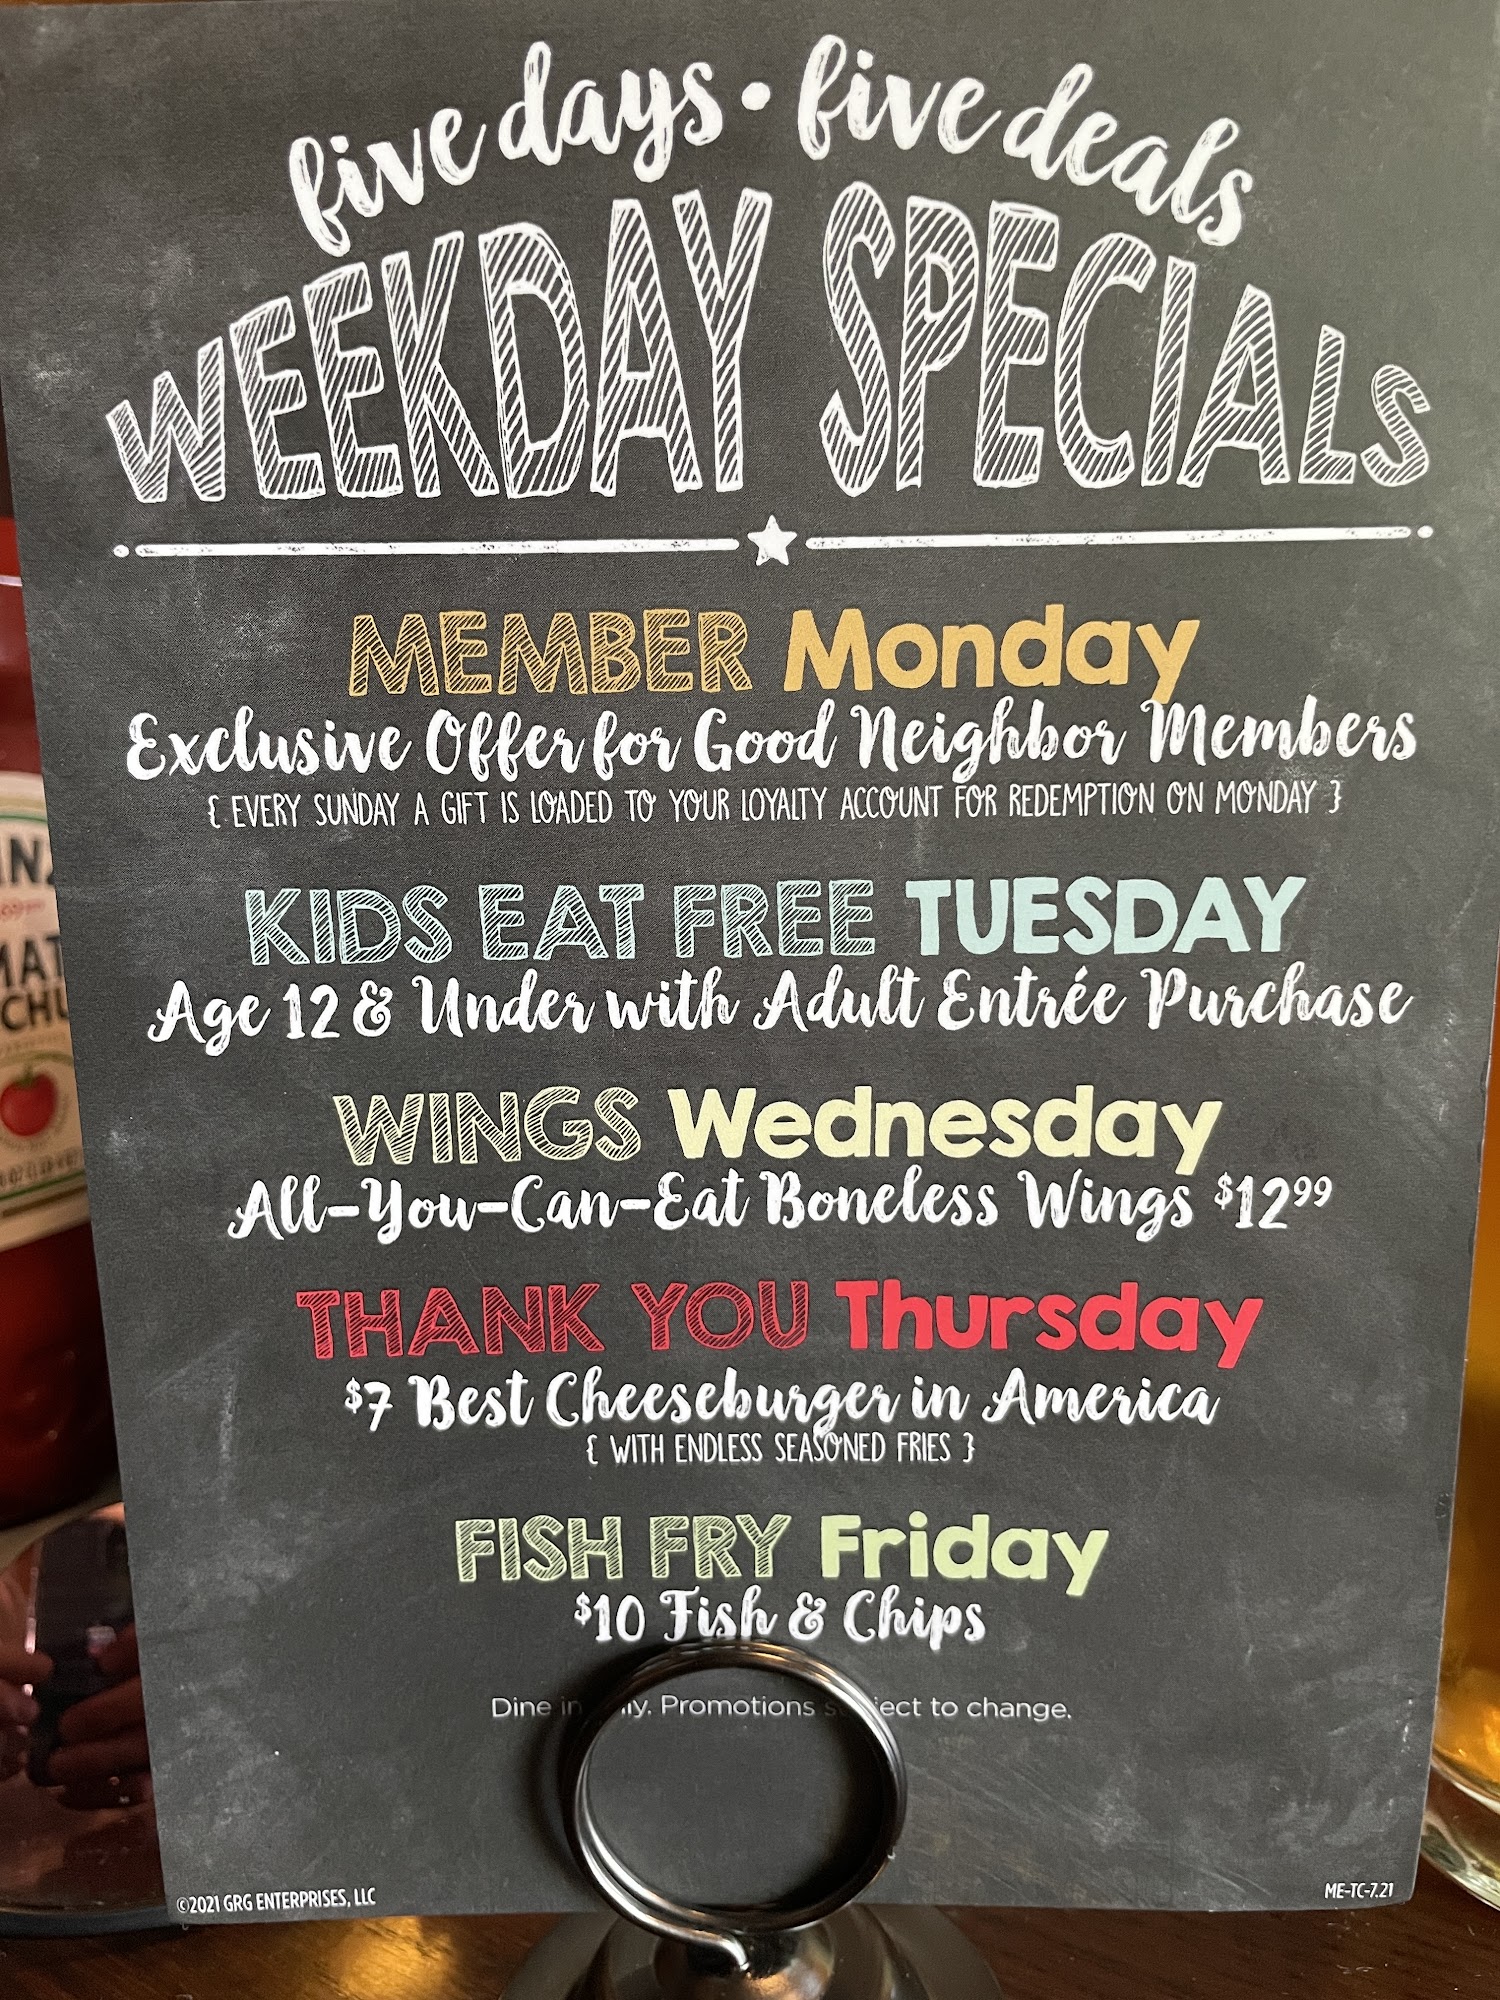 five days • five deals
WEEKDAY SPECIALS
MEMBER Monday
Exclusive Offer for Good Neighbor Members
{ EVERY SUNDAY A GIFT IS LOADED TO YOUR LOYALTY ACCOUNT FOR REDEMPTION ON MONDAY }
KIDS EAT FREE TUESDAY
Age 12 & Under with Adult Entrée Purchase
WINGS Wednesday
All-You-Can-Eat Boneless Wings $12.99
THANK YOU Thursday
$7 Best Cheeseburger in America
{ WITH ENDLESS SEASONED FRIES }
FISH FRY Friday
$10 Fish & Chips
Dine in Promotions to change.
©2021 GRG ENTERPRISES, LLC
ME-TC-7.21